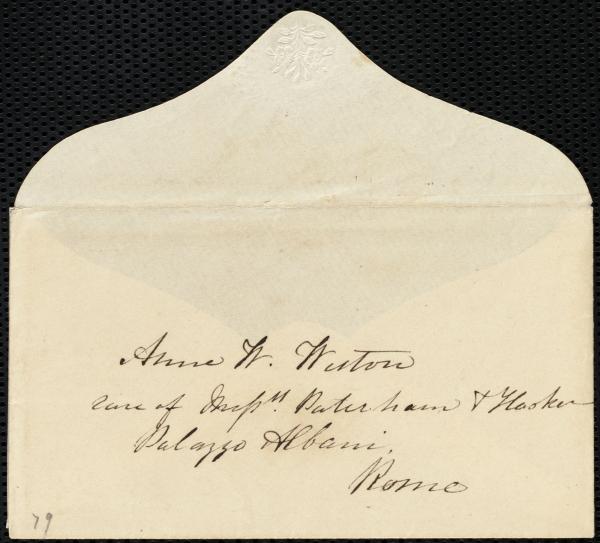 Anne W. Weston
care of Messrs. Pakenham & Hooker
Palazzo Albani,
Rome
79